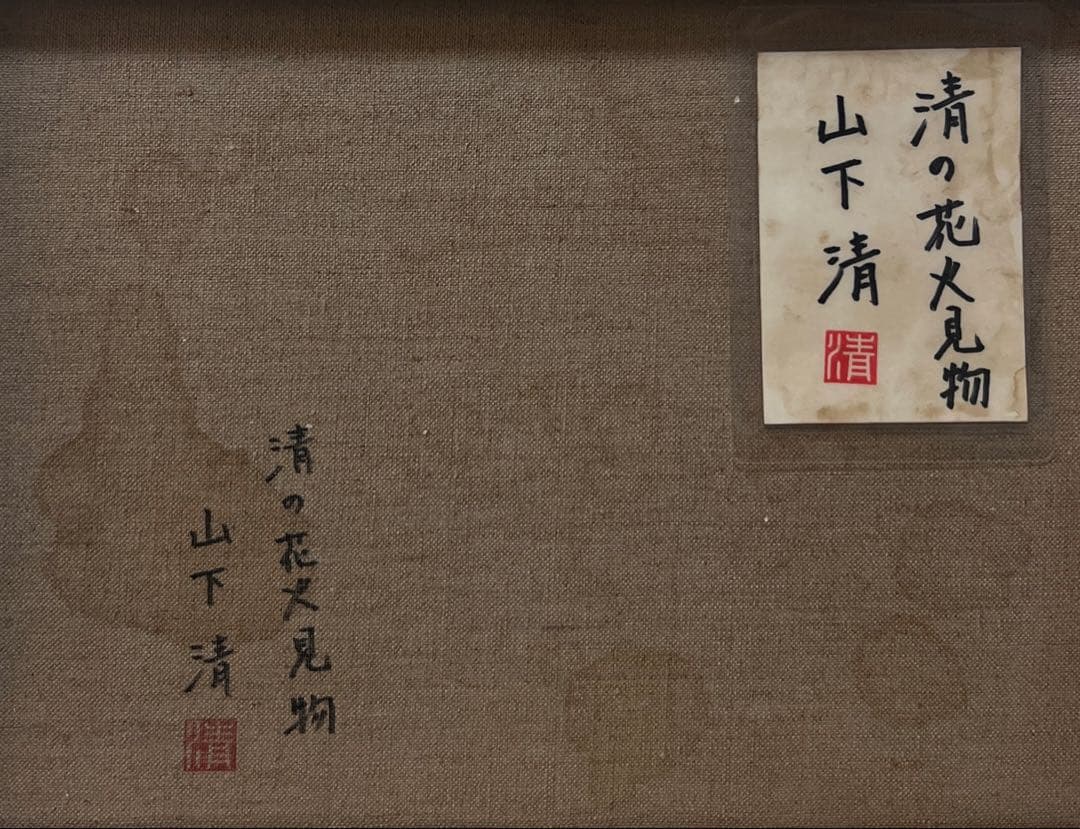 清の花火見物
山下清
清
清の花火見物
山下清
清